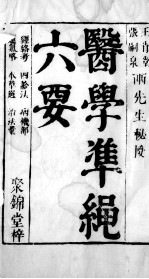 王肯堂
張嗣泉 兩先生秘授
醫學準繩
六要
經絡考 四診法 病機部
運氣略 本草選 治法彙
聚錦堂梓